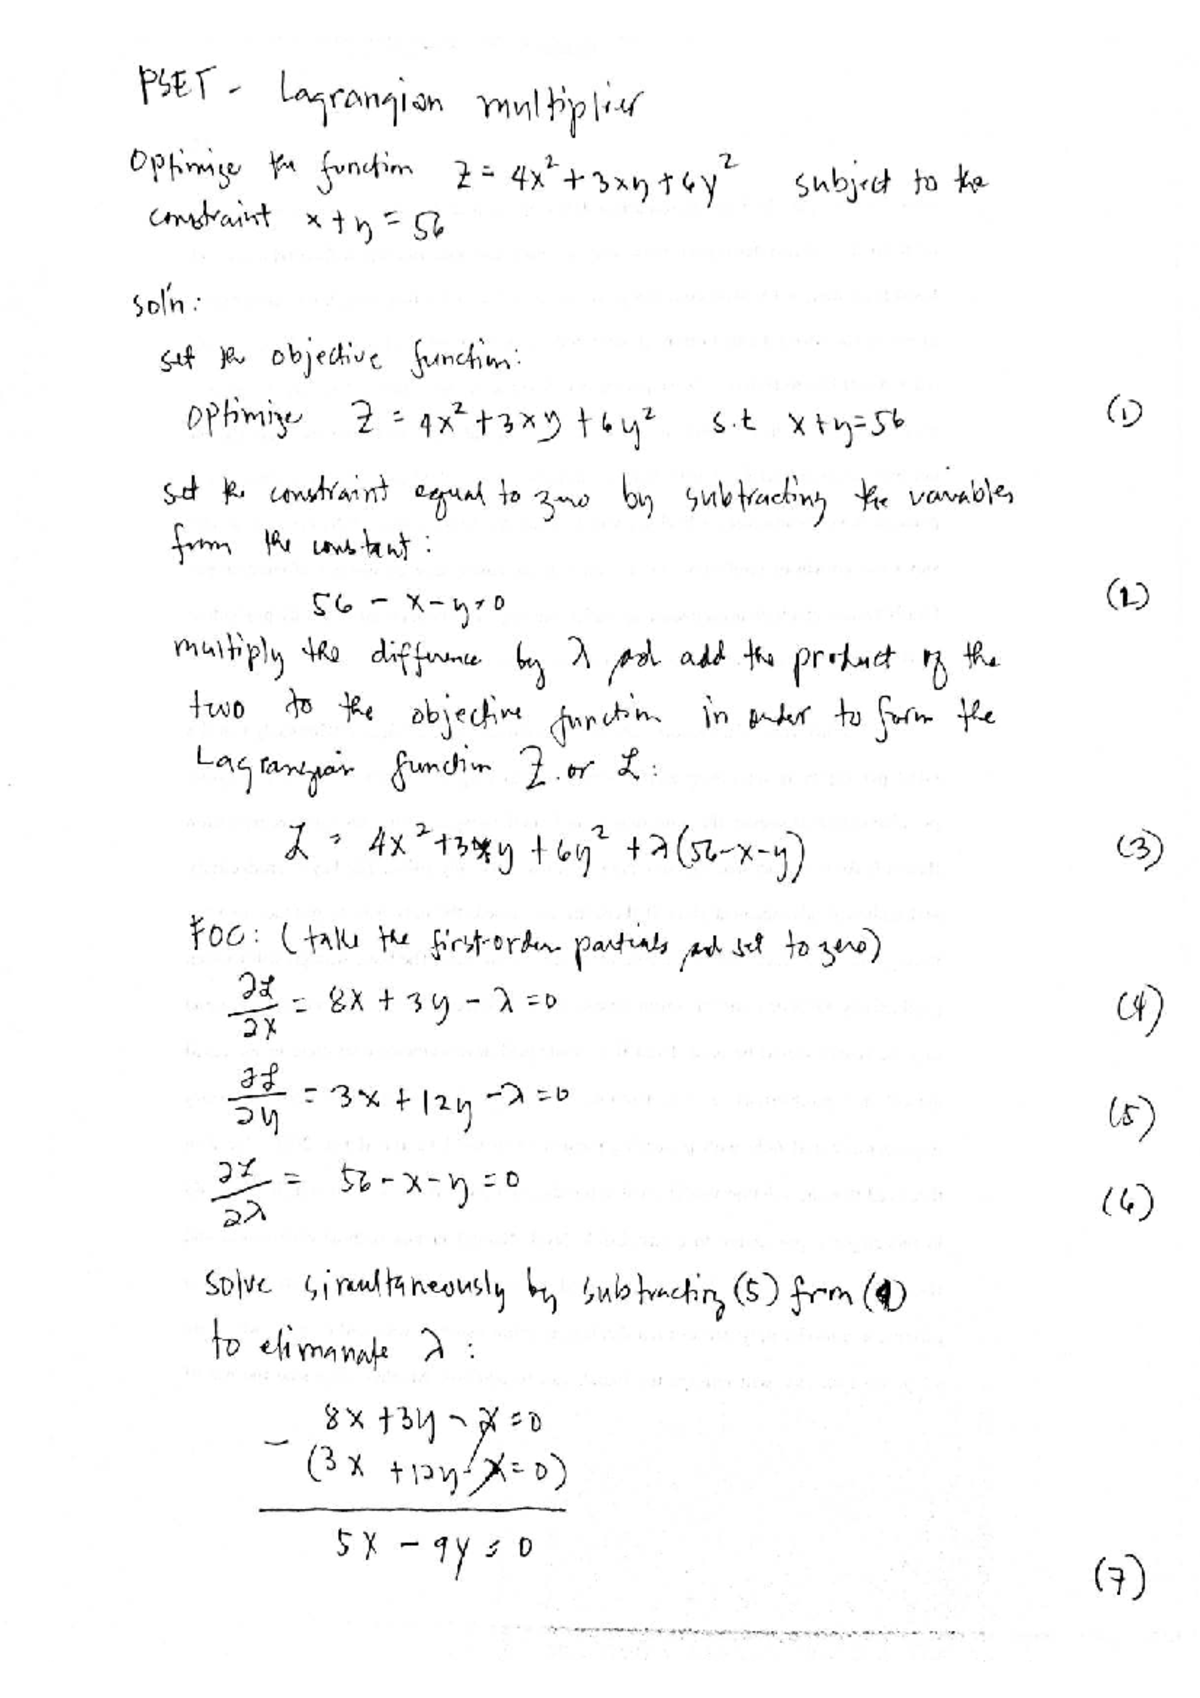 PSET - Lagrangian multiplier
Optimize the function Z = 4x² + 3xy + 6y² subject to the
constraint x + y = 56
sol'n:
set the objective function:
optimize Z = 4x² + 3xy + 6y² s.t x + y = 56 (1)
set the constraint equal to zero by subtracting the variables
from the constant:
56 - x - y = 0 (2)
multiply the difference by λ and add the product of the
two to the objective function in order to form the
Lagrangian function Z or ℒ:
ℒ = 4x² + 3xy + 6y² + λ(56-x-y) (3)
FOC: (take the first-order partials and set to zero)
∂ℒ/∂x = 8x + 3y - λ = 0 (4)
∂ℒ/∂y = 3x + 12y - λ = 0 (5)
∂ℒ/∂λ = 56 - x - y = 0 (6)
solve simultaneously by subtracting (5) from (4)
to elimanate λ:
8x + 3y - λ = 0
- (3x + 12y - λ = 0)
5x - 9y = 0 (7)